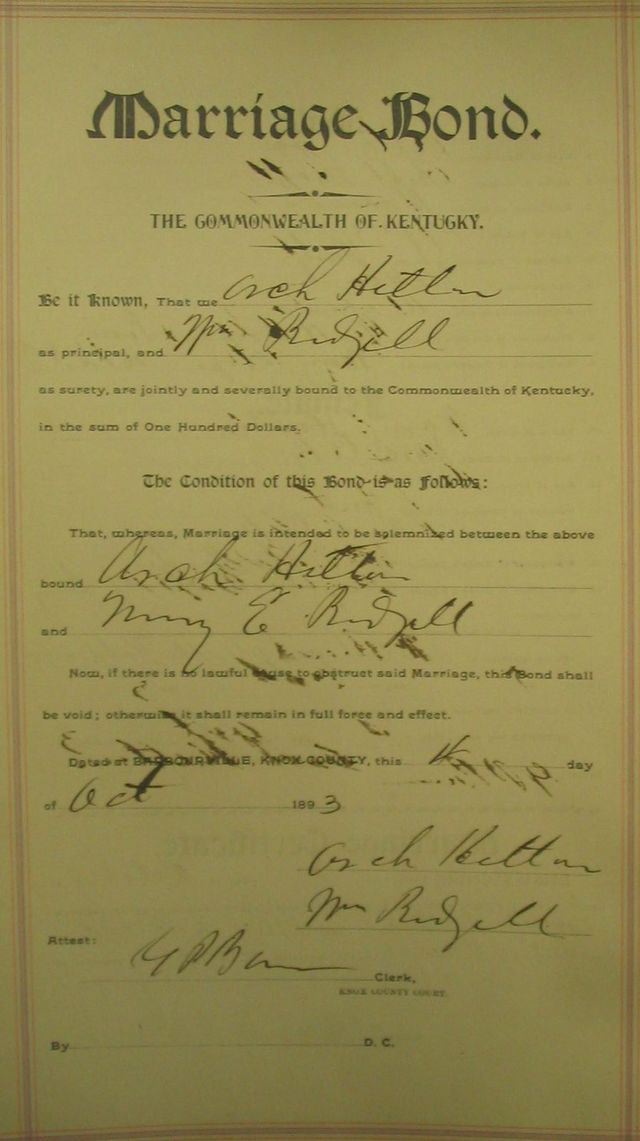 Marriage Bond.
THE COMMONWEALTH OF KENTUCKY.
Be it Known, That we Arch Helton
as principal, and Wm Ridgell
as surety, are jointly and severally bound to the Commonwealth of Kentucky,
in the sum of One Hundred Dollars.
The Condition of this Bond is as Follows:
That, whereas, Marriage is intended to be solemnized between the above
bound Arch Helton
and E Ridgell
Now, if there is no lawful cause to obstruct said Marriage, this Bond shall
be void; otherwise it shall remain in full force and effect.
Dated at BARBOURVILLE, KNOX COUNTY, this day
of Oct 1893
Arch Helton
Wm Ridgell
Attest:
Clerk,
KNOX COUNTY COURT.
By D. C.